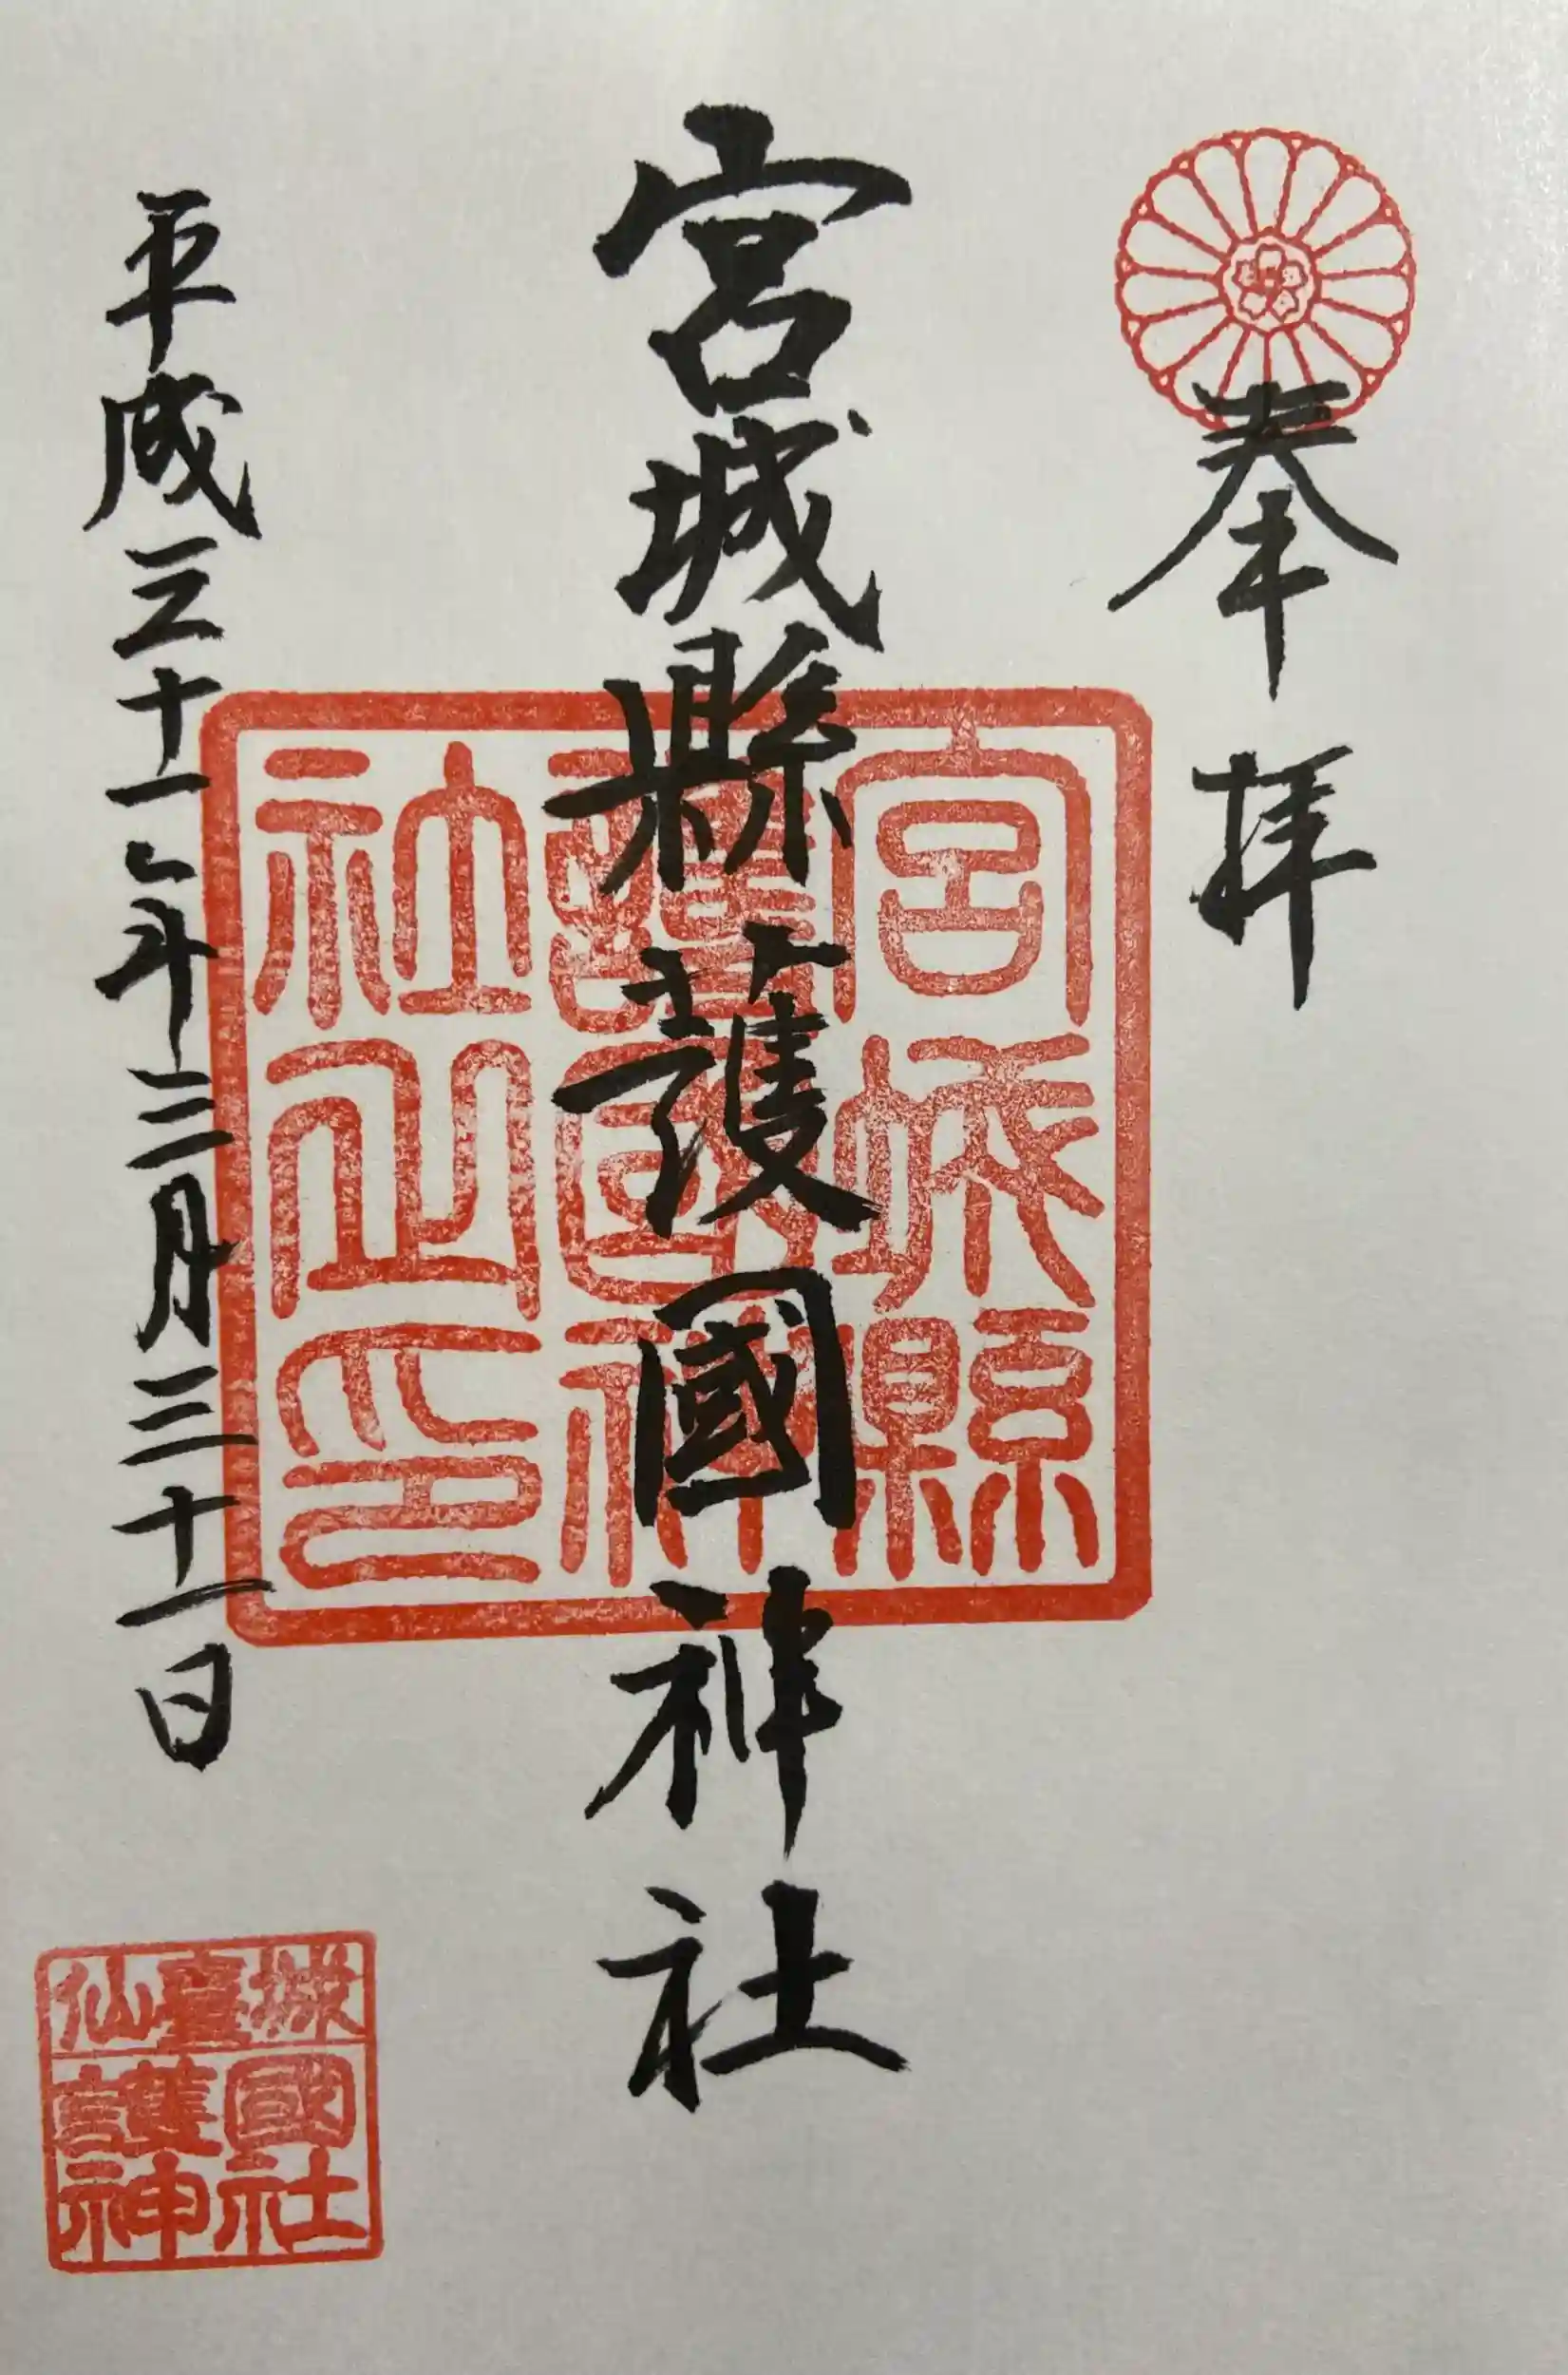 奉拝
宮城縣護國神社
平成三十一年三月三十一日
宮城縣
護國神
社之印
仙臺城
護國
神社